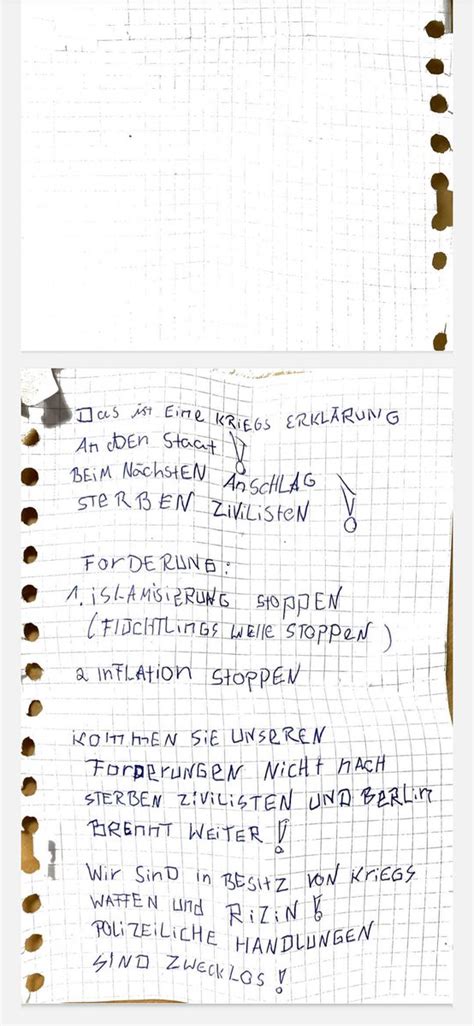 Das ist Eine KRiEGS ERKLÄRUNG
An DEN Staat !
BEIM NächstEN AnSCHLAG
STERBEN ZiViLiSTEN !
FORDERUNG:
1. iSLAMiSiERUNG STOPPEN
(FLÜCHTLiNGS WELLE STOPPEN)
2 INFLATION STOPPEN
KOMMEN SiE UNSEREN
FORDERUNGEN NiCHT NACH
STERBEN ZiViLiSTEN UND BERLiN
BRENNT WEiTER !
WiR SinD in BESiTZ VON KRiEGS
WAFFEN und RiZiN !
POLiZEiLiCHE HANDLUNGEN
SiND ZWECKLOS !